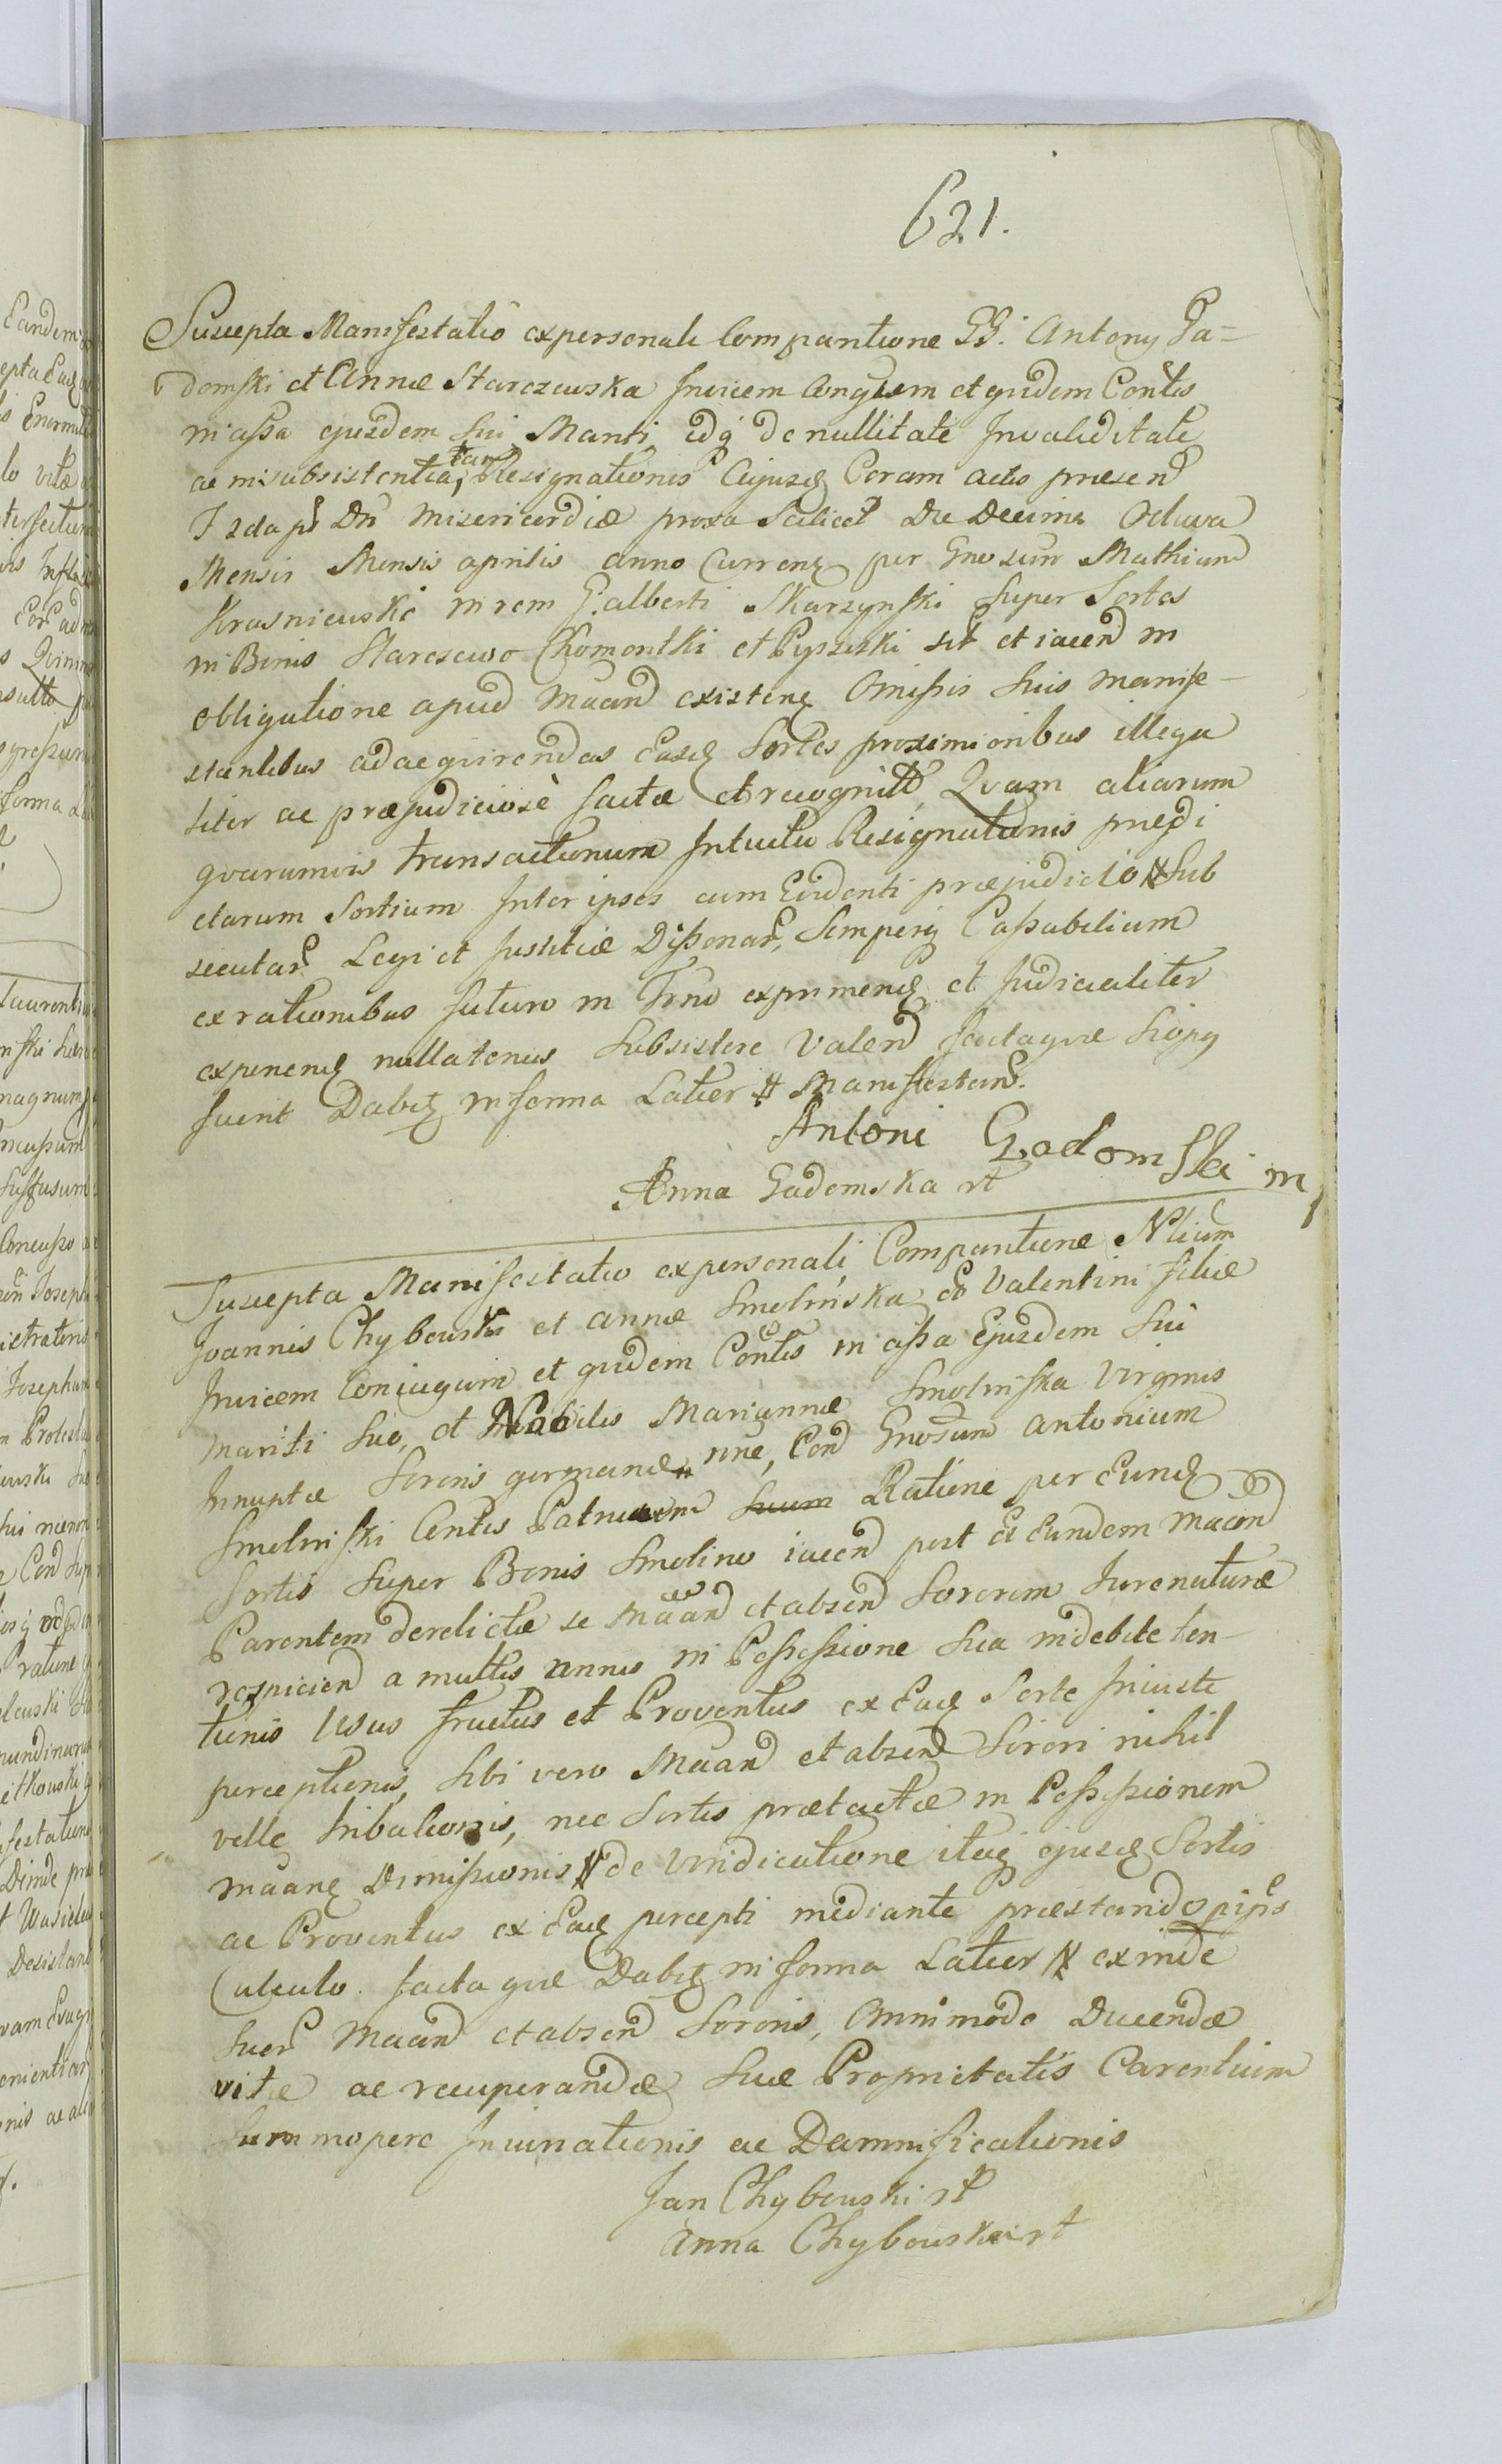 621.
Suscepta Manifestatio ex personali Comparitione GG. Antony Ga=
domski et Annæ Starczewska Invicem Conjugum et quidem Contis
in assa ejusdem sui Mariti, idq de nullitate Invaliditate
ac insubsistentia, tam Resignationis Cujusd Coram actis præsen
Izda ps Dn̄ Misericordiæ proxa Scilicet Die Decima Octava
Mensis Mensis aprilis anno Curren per Gnosum Mathiam
Krasniewski in rem G. alberti Skarzynski super Sortes
in Bonis Starczewo Chomontki et Pyszki sit et iacen in
obligatione apud Māan existen Omissis suis Manife-
stantibus ad aequirendas Easd Sortes proximioribus illega
liter ac præjudiciose factæ et recognitæ, Quam aliarum
quarumvis transactionum Intuitu Resignationis prædi
ctarum Sortium Inter ipsos cum Evidenti præjudicio # Sub
secutar Legi et Justitiæ Dissonar, Semperq Cassabilium
ex rationibus futuro in Trno exprimen et Judicialiter
exponen nullatenus Subsistere Valen factaque
fuerit Dabit in forma Latior # Manifestan.
Antoni Gadomski m
Anna Gadomska rt
Suscepta Manifestatio ex personali Comparitione Nlium
Joannis Chybowski et Annæ Smolinska Valentini filiæ
Invicem Coniugum et quidem Contis in assa Ejusdem Sui
Mariti sue, et Nobilis Mariannæ Smolinska Virginis
Innuptæ Sororis germanæ # nne, Con Gnosum Antonium
Smolinski Contis Patruum suum Ratione per Eund
Sortis super Bonis Smolino iacen post Eundem Macon
Parentem derelictæ se Māan et absen Sororem Iure naturæ
respicien a multis annis in Possessione Sua indebite ten-
tionis Usus fructus et Proventus ex Ead Sorte Iniuste
perceptionis, sibi vero Māan et absen Sorori nihil
velle tribuionis, nec Sortis prætactæ in Possessionem
māan Dimissionis # de vindicatione itaq ejusd Sortis
ac Proventus ex Ead percepti mediante præstando
Calculo. factaque Dabit in forma Latior # exinde
suer Māan et absen Sororis, Omnimodo Ducendæ
vitæ ac recuperandæ suæ Proprietatis Carentium
Summopere Iniuriationis ac Damnificationis
Jan Chybowski rt
Anna Chybowska rt